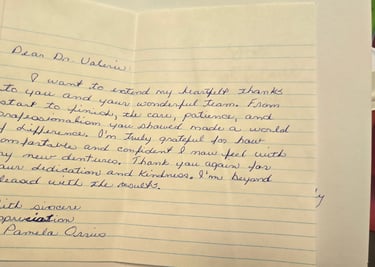 Dear Dr. Valerie:
I want to extend my heartfelt thanks
to you and your wonderful team. From
start to finish, the care, patience, and
professionalism you showed made a world
of difference. I'm truly grateful for how
comfortable and confident I now feel with
my new dentures. Thank you again for
your dedication and kindness. I'm beyond
pleased with the results.
With sincere
appreciation
Pamela